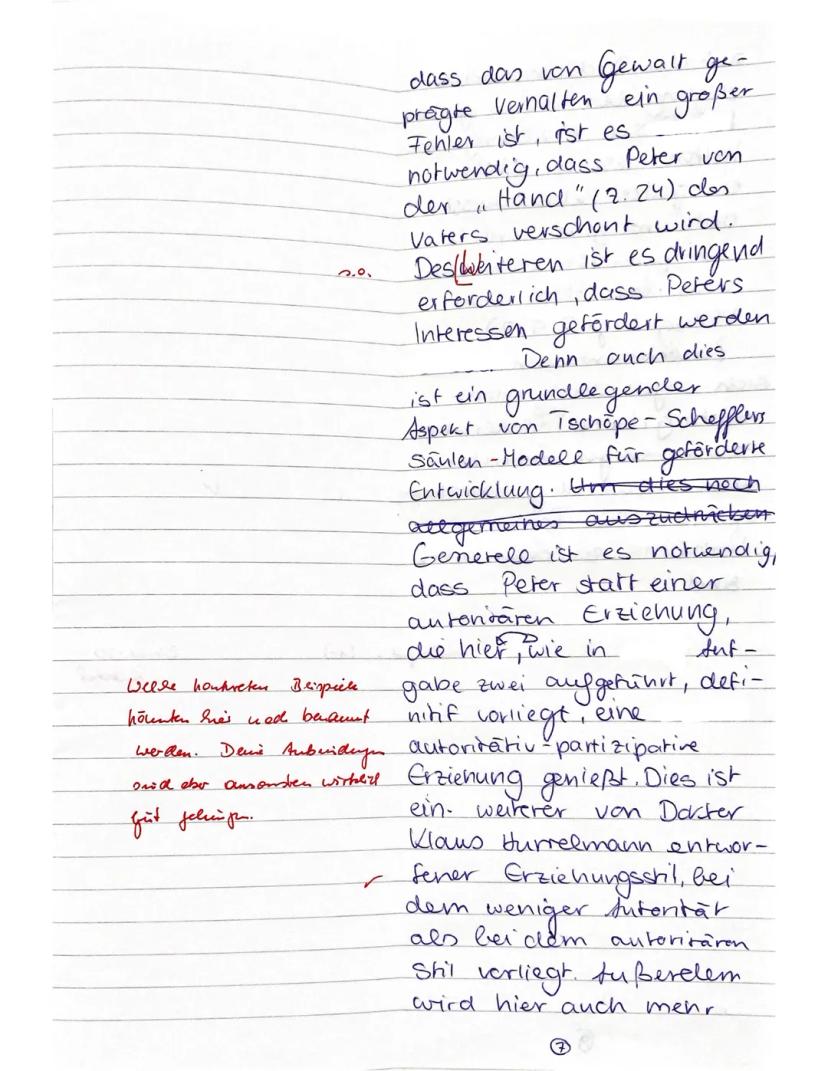 dass das von Gewalt ge-
prägte Verhalten ein großer
Fehler ist, ist es
notwendig, dass Peter von
der „Hand" (Z. 24) des
Vaters verschont wird.
s.o.
Des(weiteren ist es dringend
erforderlich, dass Peters
Interessen gefördert werden
Denn auch dies
ist ein grundlegender
Aspekt von Tschöpe-Schefflers
Säulen-Modell für geförderte
Entwicklung. Um dies noch
allgemeines auszudrücken
Generell ist es notwendig,
dass Peter statt einer
autoritären Erziehung,
die hier, wie in Auf-
gabe zwei aufgeführt, defi-
nitif vorliegt, eine
autoritativ-partizipative
Erziehung genießt. Dies ist
ein weiterer von Doktor
Klaus Hurrelmann entwor-
fener Erziehungsstil, bei
dem weniger Autorität
als bei dem autoritären
Stil vorliegt. Außerdem
wird hier auch mehr
Welche konkreten Beispiele
könnten hier noch benannt
werden. Deine Anbindungen
sind aber ansonsten wirklich
gut gelungen.
7